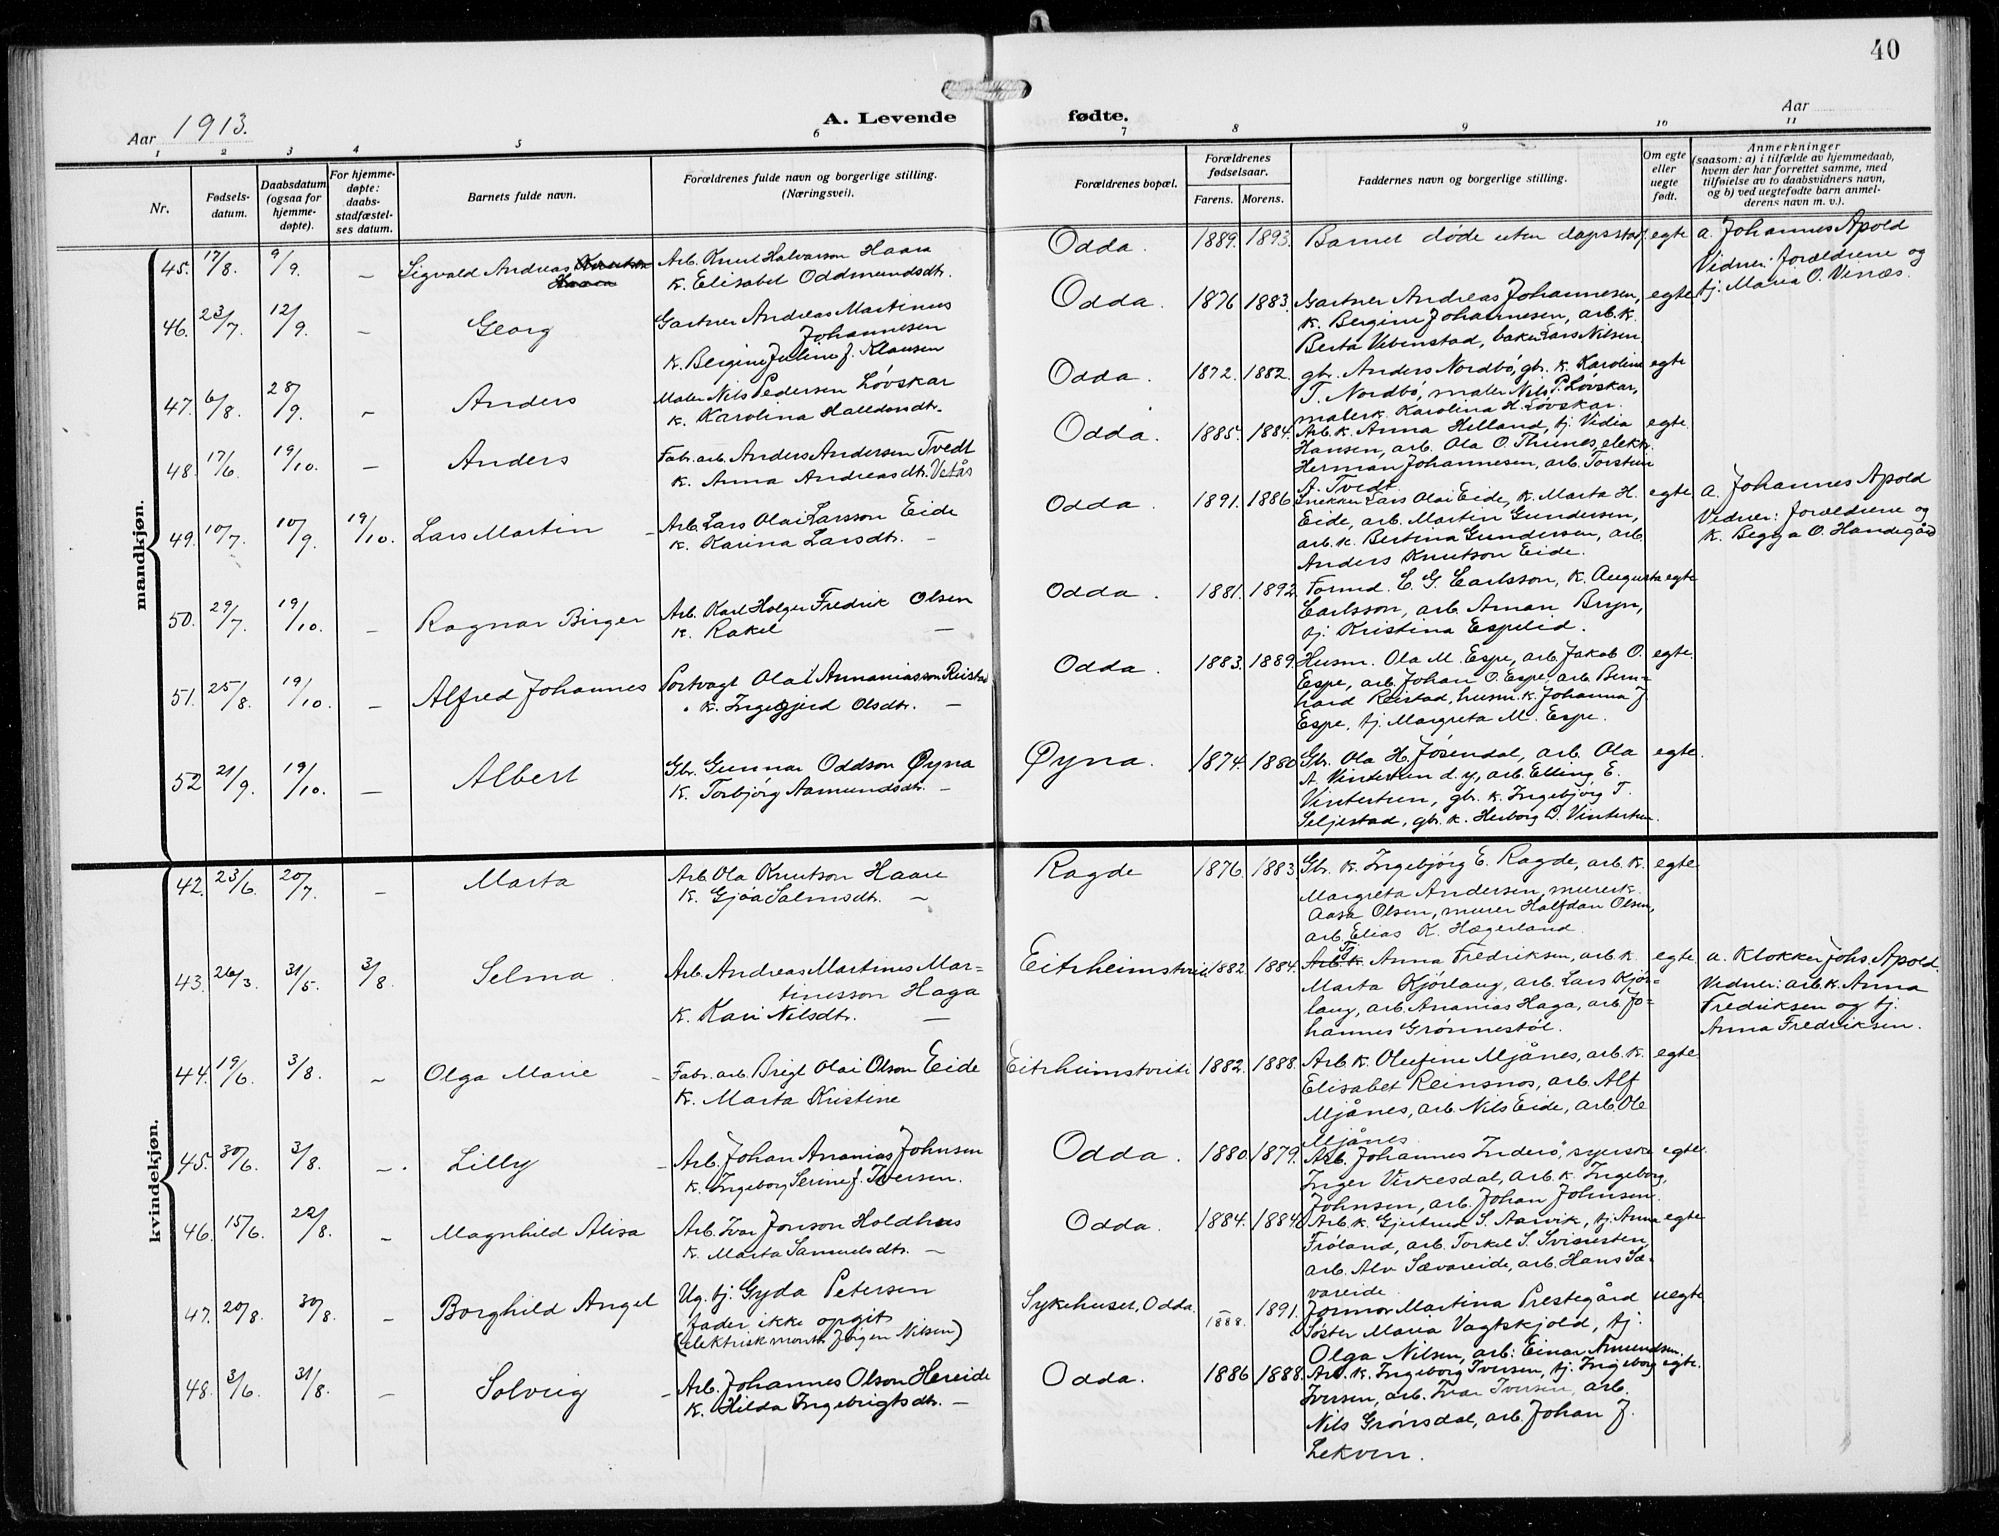 40
Aar 1913.
A. Levende fødte.
Aar
1 2 3 4 5 6 7 8 9 10 11
Nr.
Fødsels-
datum.
Daabsdatum
(ogsaa for
hjemme-
døpte).
For hjemme-
døpte:
daabs-
stadfæstel-
ses datum.
Barnets fulde navn.
Forældrenes fulde navn og borgerlige stilling.
(Næringsvei).
Forældrenes bopæl.
Forældrenes
fødselsaar.
Farens. Morens.
Faddernes navn og borgerlige stilling.
Om egte
eller
uegte
født.
Anmerkninger
(saasom: a) i tilfælde av hjemmedaab,
hvem der har forrettet samme, med
tilføielse av to daabsvidners navn,
og b) ved uegtefødte barn anmel-
derens navn m. v.).
mandkjøn.
45. 17/8. 9/9. – Sigvald Andreas Knutson
Haara
Arb. Knut Halvarson Haara
K. Elisabet Oddmundsdt.
Odda. 1889. 1893. Barnet døde uten dapsstaf. egte
a. Johannes Apold
Vidner: forældrene og
tj. Maria O. Vinæs.
46. 23/7. 12/9. – Georg
Gartner Andreas Martinus
Johannesen
K. Bergine Juline f. Klausen
Odda. 1876 1883. Gartner Andreas Johannesen, egte
k. Bergine Johannesen, arb. k.
Berta Vibenstad, baker Lars Nilsen
47. 6/8. 28/9. – Anders
Maler Nils Pedersen Løvskar
k. Karolina Halldorsdt.
Odda. 1872. 1882. gbr. Anders Nordbø, gbr. k. Karoline egte
T. Nordbø, maler Nils P. Løvskar,
malerk. Karolina H. Løvskar.
48. 17/6 19/10. – Anders
Fabr. arb. Anders Andersen Tvedt
k. Anna Andreasdt. Vetås
Odda. 1885. 1884. Arb. k. Anna Helland, tj. Vidia egte
Hansen, arb. Ola O. Thunes, elektr.
Herman Johannesen, arb. Torstein
A. Tvedt
49. 10/7. 10/9. 19/10. Lars Martin
Arb. Lars Olai Larsson Eide
k. Karina Larsdt. –
Odda. 1891. 1886 Snekker Lars Olai Eide, k. Marta H. egte
Eide, arb. Martin Gundersen,
arb. k. Bertina Gundersen, arb.
Anders Knutson Eide.
a. Johannes Apold
Vidner: forældrene og
k. Begga O. Handegård
50. 29/7. 19/10. – Ragnar Birger
Arb. Karl Holger Fredrik Olsen
k. Rakel –
Odda. 1881. 1892. Formd. C. G. Carlsson, k. Augusta egte
Carlsson, arb. Aman Bryn,
tj. Kristina Espelid.
51. 25/8. 19/10. – Alfred Johannes
Portvagt Olai Annaniasson Reistad
k. Ingegjerd Olsdt. –
Odda. 1883. 1889. Husm. Ola M. Espe, arb. Jakob O. egte.
Espe, arb. Johan O. Espe, arb. Bern-
hard Reistad, husm. k. Johanna J.
Espe, tj. Margreta M. Espe.
52 21/9. 19/10. – Albert
Gbr. Gunnar Oddson Øyna
K. Torbjørg Aamundsdt. –
Øyna. 1874. 1880 Gbr. Ola H. Jøsendal, arb. Ola egte.
A. Vintertun d.y, arb. Elling E.
Vintertun, gbr. k. Ingebjørg T.
Seljestad, gbr. k. Herborg D. Vintertun.
kvindekjøn.
42. 23/6. 20/7. – Marta
Arb. Ola Knutson Haare
K. Gjøa Salmsdt. –
Ragde 1876. 1883. Gbr. k. Ingebjørg E. Ragde, arb. k. egte
Margreta Andersen, murerk.
Aasa Olsen, murer Halfdan Olsen,
arb. Elias K. Hægerland.
43. 26/3. 31/5. 3/8. Selma
Arb. Andreas Martines Mar-
tinesson Haga
K. Kari Nilsdt. –
Eitrheimstveit 1882. 1884. Arb. k. Tj. Anna Fredriksen, arb. k. egte
Marta Kjørlaug, arb. Lars Kjør-
laug, arb. Ananias Haga, arb. Jo-
hannes Grønnestøl.
a. Klokker Johs. Apold.
Vidner: arb. k. Anna
Fredriksen og tj.
Anna Fredriksen.
44. 19/6. 3/8. – Olga Marie
Fabr. arb. Brigt Olai Olson Eide
K. Marta Kristine
Eitrheimstveit 1882. 1888. Arb. k. Olufine Mjånes, arb. k. egte
Elisabet Reinsnos, arb. Alf
Mjånes, arb. Nils Eide, arb. Ole
Mjånes.
45. 30/6. 3/8. – Lilly
Arb. Johan Ananias Johnsen
k. Ingeborg Serine f. Iversen.
Odda. 1880. 1879. Arb. Johannes Inderø, syerske egte.
Inger Virkesdal, arb. k. Ingeborg
Johnsen, arb. Johan Johnsen.
46. 15/6. 22/8. – Magnhild Alisa
Arb. Ivar Jonson Holdhus
k. Marta Samuelsdt. –
Odda. 1884. 1884. Arb. k. Gjertrud S. Aarvik, tj. Anna egte
Frøland, arb. Torkel S.
arb. Alv Sævareide, arb. Hans Sæ-
vareide.
47. 20/8. 30/8. – Borghild Angel
Ug. tj. Gyda Petersen
fader ikke opgit
(elektriskmontør Jørgen Nilsen)
Sykehuset, Odda – 1888. 1891. Jormor Martina Prestegård uegte
Søster Maria Vagtskjold, tj.
Olga Nilsen, arb. Einar Amundsen.
48. 3/6. 31/8. – Solveig
Arb. Johannes Olson Hereide
K. Hilda Ingebrigtsdt. –
Odda. 1886 1888. Arb. k. Ingeborg Iversen, tj. Ingeborg egte.
Iversen, arb. Ivar Iversen, arb.
Nils Grønsdal, arb. Johan J.
Lekven.